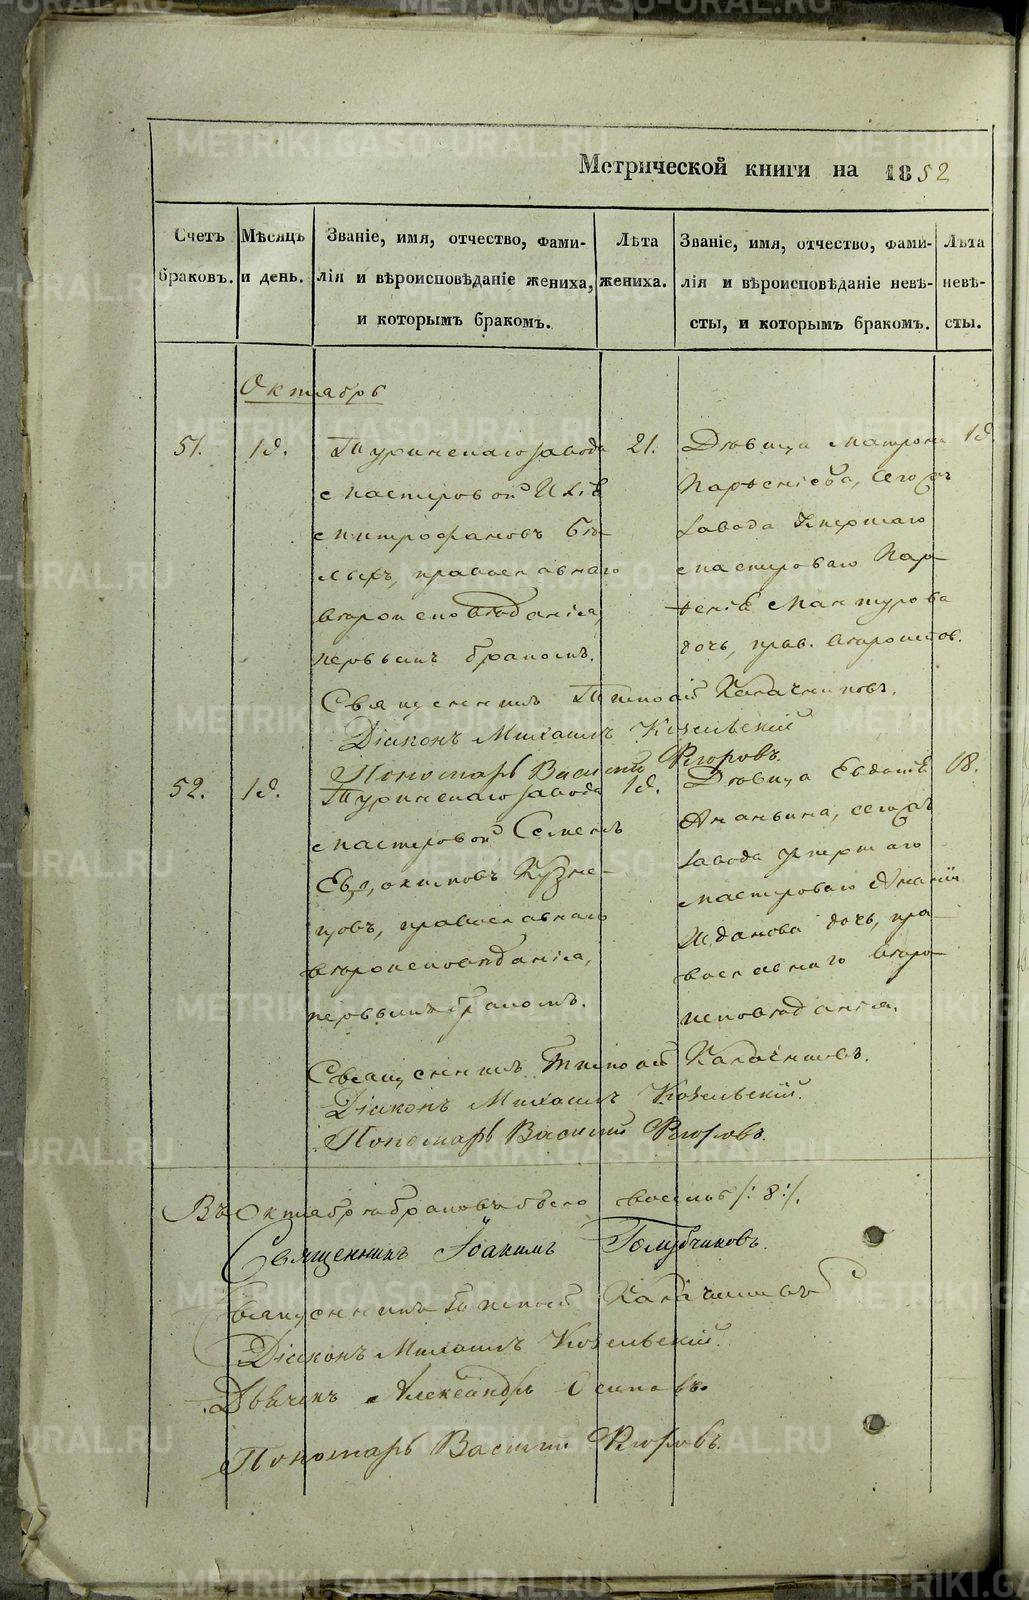 Метрической книги на 1852
Счетъ браковъ.
Мѣсяцъ и день.
Званіе, имя, отчество, фами-
лія и вѣроисповѣданіе жениха,
и которымъ бракомъ.
Лѣта
жениха.
Званіе, имя, отчество, фами-
лія и вѣроисповѣданіе невѣ-
сты, и которымъ бракомъ.
Лѣта
невѣ-
сты.
Октябрь
51.
19.
Туринскаго завода
мастеровой
Митрофановъ Бѣ-
лыхъ, православнаго
вѣроисповѣданія,
первымъ бракомъ.
21.
Дѣвица Матрона
Парѳеніева, сегожъ
завода умершаго
мастероваго Пар-
ѳенія Мантурова
дочь, прав. вѣроиспов.
19.
Священникъ Тимоѳей Калачниковъ.
Діаконъ Михаилъ Козельскій
Пономарь Василій Ѳегоровъ.
52.
19.
Туринскаго завода
мастеровой Семенъ
Евдокимовъ Кузне-
цовъ, православнаго
вѣроисповѣданія,
первымъ бракомъ.
19.
Дѣвица Евдокія
Ананьина, сегожъ
завода умершаго
мастероваго Ананіи
Жданова дочь, пра-
вославнаго вѣро-
исповѣданія.
18.
Священникъ Тимоѳей Калачниковъ.
Діаконъ Михаилъ Козельскій.
Пономарь Василій Ѳегоровъ.
Въ Октябрѣ браковъ было восемь /: 8 :/.
Священникъ Іоакимъ Голубчиковъ.
Священникъ Тимоѳей Калачниковъ
Діаконъ Михаилъ Козельскій.
Дьячекъ Александръ Осиповъ.
Пономарь Василій Ѳегоровъ.
METRIKI.GASO-URAL.RU